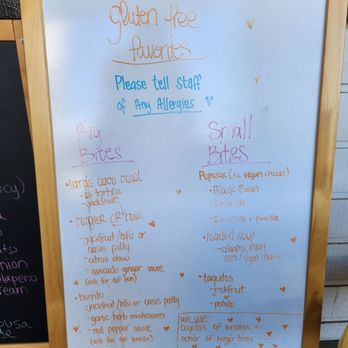 gluten free
favorites
Please tell staff
of Any Allergies
Big
Bites
taco bowl
tortilla
jackfruit
burger bowl
- jackfruit/tofu or
oasis patty
- citrus slaw
- avocado ginger sauce
(ask for GF bun)
burrito
- jackfruit/tofu or oasis patty
- garlic herb mushrooms
- red pepper sauce
(ask for GF tortilla)
Small
Bites
Pupusas (w. vegan cheese)
• Black Bean
• Spinach
• Zucchini +
• loaded soup
- cilantro, onion,
corn + vegan cheese
• taquitos
- jackfruit
or
- potato
we use
tortillas +
schar gf burger buns